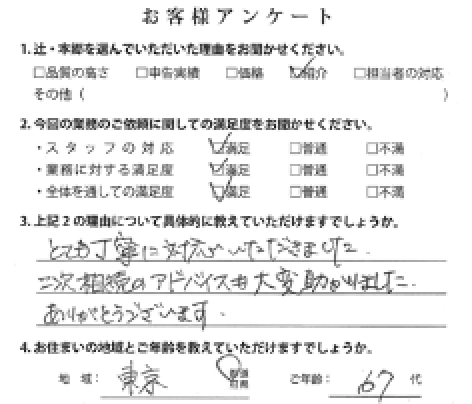 お客様アンケート
1. 辻・本郷を選んでいただいた理由をお聞かせください。
□品質の高さ □申告実績 □価格 ☑紹介 □担当者の対応
その他 ( )
2. 今回の業務のご依頼に関しての満足度をお聞かせください。
・スタッフの対応 ☑満足 □普通 □不満
・業務に対する満足度 ☑満足 □普通 □不満
・全体を通しての満足度 ☑満足 □普通 □不満
3. 上記2の理由について具体的に教えていただけますでしょうか。
とても丁寧に対応いただきました.
二次相続のアドバイスも大変助かりました.
ありがとうございます.
4. お住まいの地域とご年齢を教えていただけますでしょうか。
地域: 東京 都道府県 ご年齢: 67 代